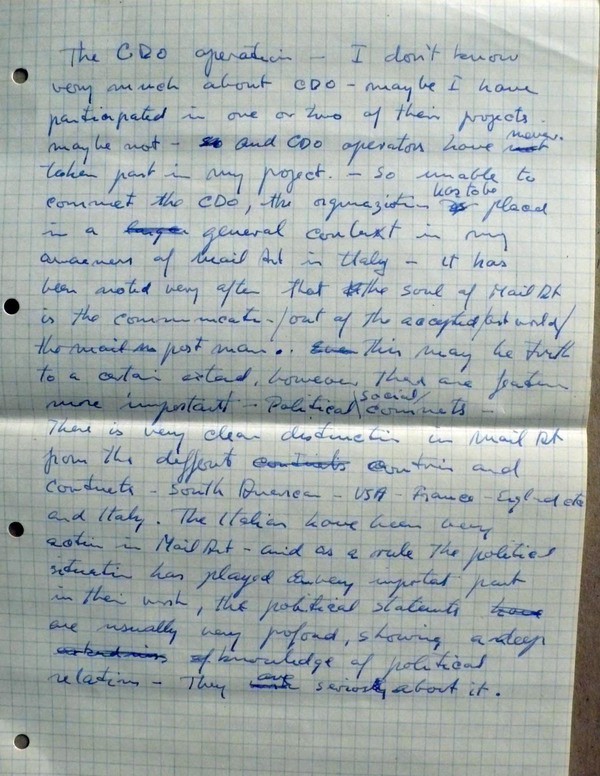 The CDO operation – I don't know
very much about CDO – maybe I have
participated in one or two of their projects.
maybe not – and CDO operators have never
taken part in my project. – So unable to
commet the CDO, the orgnazition has to be placed
in a general context in my
awareness of Mail Art in Italy – it has
been noted very often that the soul of Mail Art
is the communicatn – /out of the accepted/art world/
the mail post man. . this may be truth
to a certain extend, however, there are featurs
more important – Political/social/comments –
There is very clear distinction in Mail Art
from the different contris and
contnets – South American – USA – France – England etc
and Italy. The Italian have been very
activ in Mail Art – and as a rule the political
situatin has played very importat part
in their work, the political stateuts
are usually very profond, showing a deep
knowledge of political
relations – They are seriosly about it.